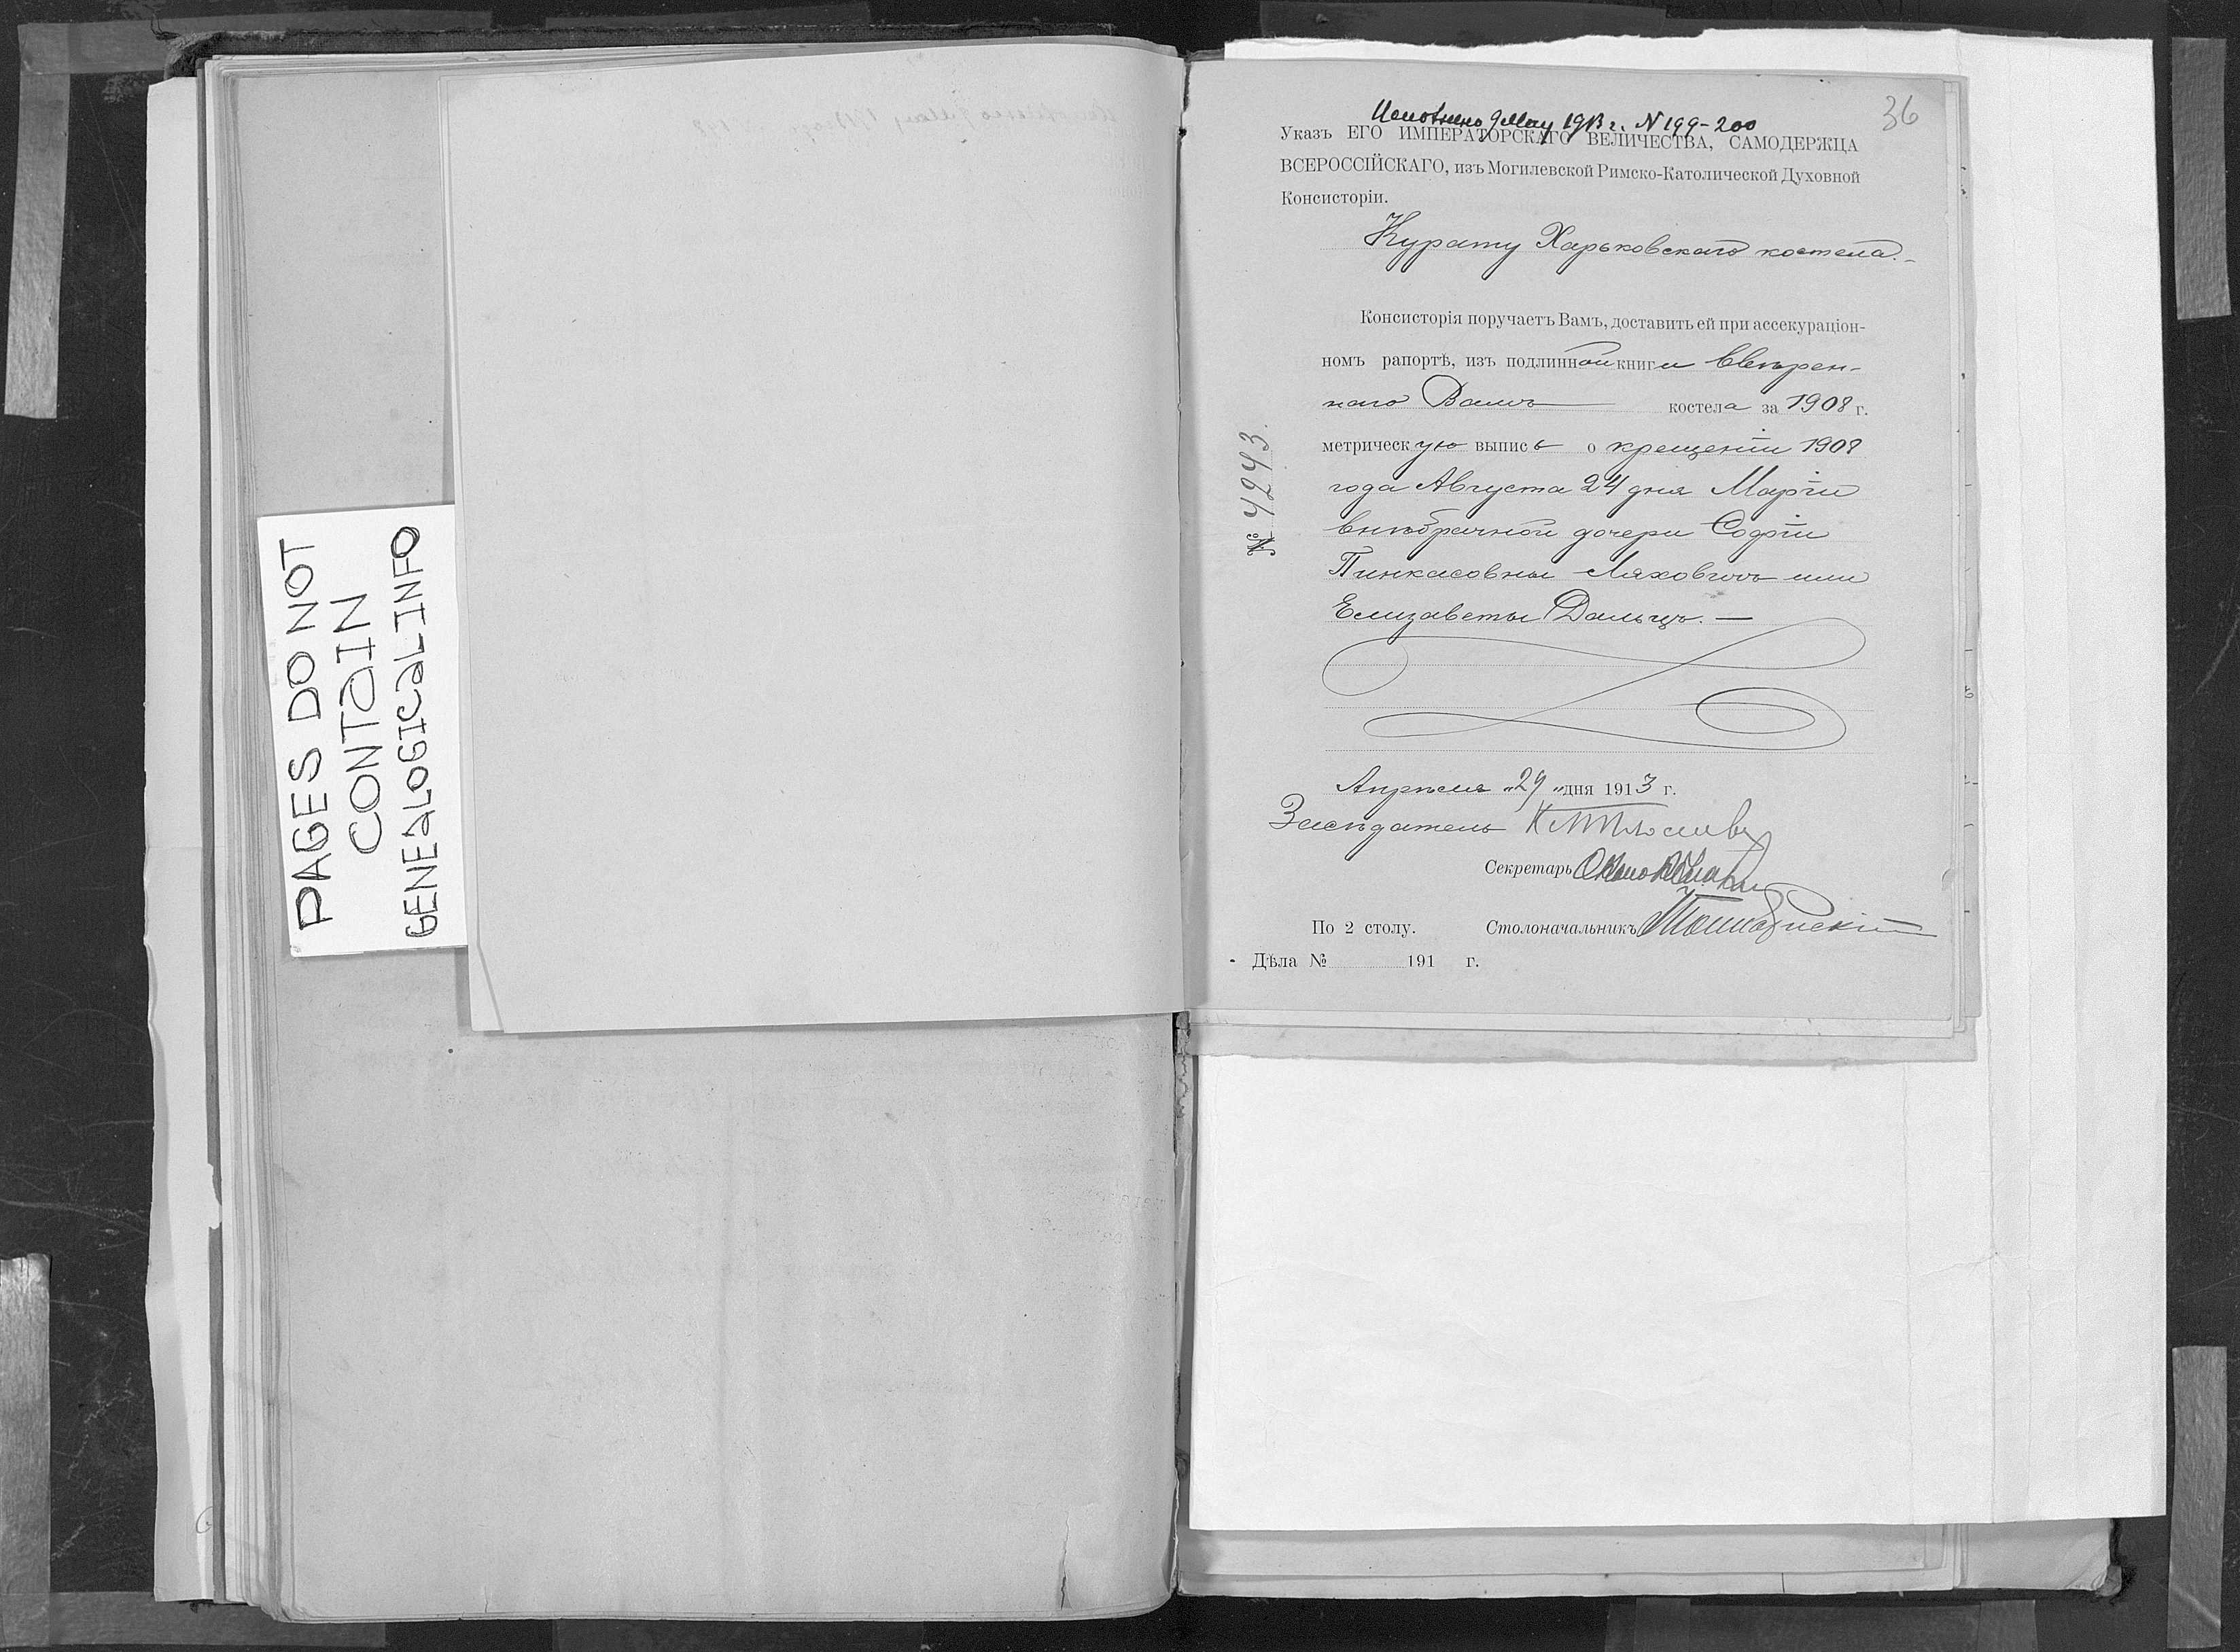 PAGES DO NOT
CONTAIN
GENEALOGICAL INFO
36
Исполнено 9 Мая 1913 г. N 199-200
Указъ ЕГО ИМПЕРАТОРСКАГО ВЕЛИЧЕСТВА, САМОДЕРЖЦА
ВСЕРОССІЙСКАГО, изъ Могилевской Римско-Католической Духовной
Консисторіи.
Курату Харьковскаго костела.-
Консисторія поручаетъ Вамъ, доставить ей при ассекураціон-
номъ рапортѣ, изъ подлинной книги ввѣрен-
наго Вамъ костела за 1908 г.
метрическую выпись о крещеніи 1908
года Августа 24 дня Маріи
внѣбрачной дочери Софіи
Пинкасовны Ляховичъ или
Елизаветы Дальцъ. —
№ 4243.
Апрѣля "29" дня 1913 г.
Засѣдатель
Секретарь
По 2 столу. Столоначальникъ
Дѣла № 191 г.